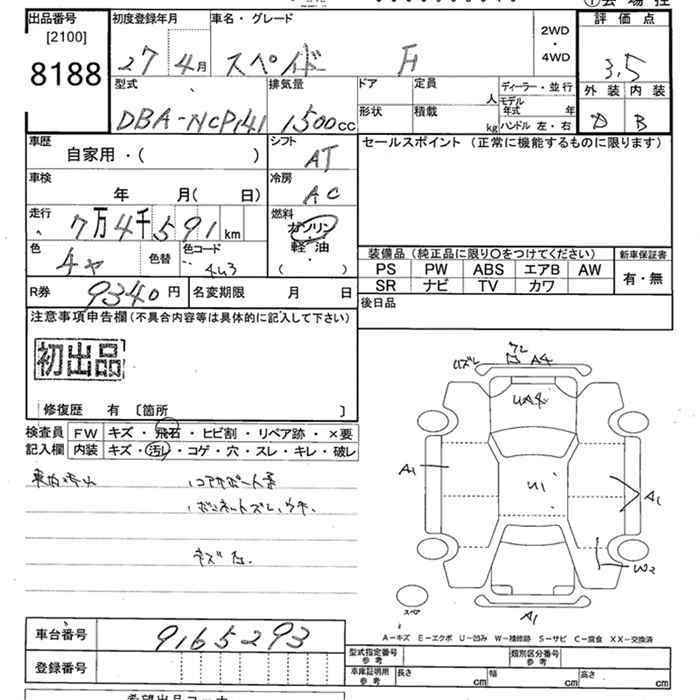 出品番号 初度登録年月 車名・グレード 2WD ・ 4WD 評価点
[2100]
8188
27 4月 スペイド F 3.5
型式 排気量 ドア 定員 人 ディーラー・並行 外装 内装
DBA-NCP141 1500cc 形状 積載 kg モデル年式 年 D B
ハンドル 左・右
車歴 シフト セールスポイント (正常に機能するものに限ります)
自家用・( ) AT
車検 冷房
年 月( 日) AC
走行 燃料
7万4千591km ガソリン
軽・油
( )
色 色替 色コード 装備品(純正品に限り○をつけてください) 新車保証書
443 PS PW ABS エアB AW 有・無
SR ナビ TV カワ
R券 9340円 名変期限 月 日 後日品
注意事項申告欄(不具合内容等は具体的に記入して下さい)
初出品
修復歴 有 〔箇所 〕
検査員 FW キズ・飛石・ヒビ割・リペア跡・×要
記入欄 内装 キズ・汚レ・コゲ・穴・スレ・キレ・破レ
コアサポート
ボンネットズレ
キズ
ズレ A4
UA4
A1 U1 A1
W2
スペア A1
A−キズ E−エクボ U−凹み W−補修跡 S−サビ C−腐食 XX−交換済
車台番号 9165293
登録番号
型式指定番号 参考 類別区分番号 参考
車庫証明用 参考 長さ cm 幅 cm 高さ cm
希望出品コーナー